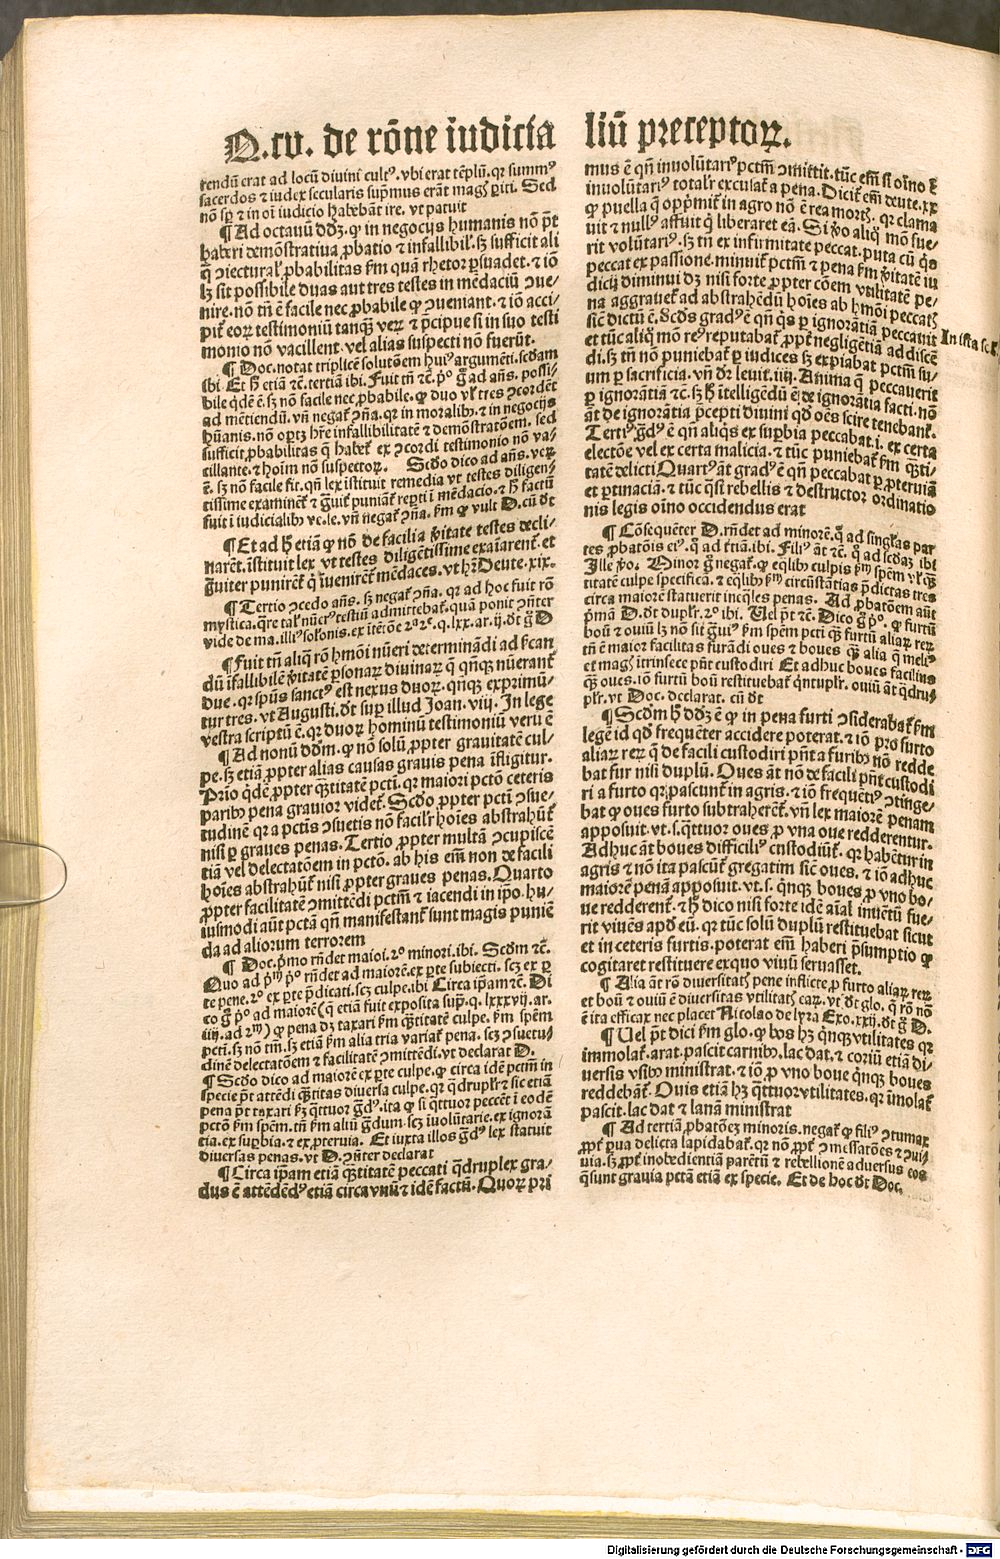 Q.cv. de rōne iudicia liū preceptoꝝ.
rendū erat ad locū diuini cultꝰ. vbi erat tēplū. qꝛ summꝰ
sacerdos ⁊ iudex secularis sup̄mus erāt mag̃ periti. Sed
nō sp̱ ⁊ in oī iudicio habebāt ire. vt patuit
¶ Ad octauū dd̄ꝫ. ꝙ in negocijs humanis nō p̄t
haberi demōstratiua ꝓbatio ⁊ infallibil̓. sꝫ sufficit ali
q̄ ↄiectural̓ ꝓbabilitas ẜm quā rhetor ꝑsuadet. ⁊ iō
lꝫ sit possibile duas aut tres testes in mēdaciū ↄue⸗
nire. nō tn̄ ē facile nec ꝓbabile ꝙ ↄueniant. ⁊ iō acci⸗
pit̄ eoꝝ testimoniū tanqꝫ veꝝ ⁊ p̄cipue si in suo testi
monio nō vacillent. vel alias suspecti nō fuerūt.
¶ Doc. notat triplicē solutōem huiꝰ argumēti. scd̄am
ibi. Et h̄ etiā ⁊c. tertiā ibi. Fuit tn̄ ⁊c. p̊ g̊ ad añs. possi⸗
bile q̇dē ē. sꝫ nō facile nec ꝓbabile. ꝙ duo vl̓ tres ↄcordēt
ad mētiendū. vn̄ negat̄ ↄn̄a. qꝛ in moralibꝰ. ⁊ in negocijs
hūanis. nō oportꝫ hr̄e infallibilitatē ⁊ demōstratōem. sed
sufficit ꝓbabilitas q̄ habet̄ ex ↄcordi testimonio nō va⸗
cillante. ⁊ hoīm nō suspectoꝝ. Scd̄o dico ad añs. veꝝ
ē. sꝫ nō facile fit. qn̄ lex īstituit remedia vt testes diligen⸗
tissime examinēt̄ ⁊ g̊uit̄ puniāt̄ reperti ī mēdacio. ⁊ h̄ factū
fuit ī iudicialibꝰ ve.le. vn̄ negat̄ ↄn̄a. ẜm ꝙ vult D. cū dt̄
¶ Et ad h̄ etiā ꝙ nō de facili a ꝟitate testes decli⸗
narēt. īstituit lex vt testes diligētissime exaīarent̄. et
g̊uiter punirēt̄ q̇ īuenirēt̄ mēdaces. vt hr̄ Deute. xix.
¶ Tertio ↄcedo añs. sꝫ negat̄ ↄn̄a. qꝛ ad hoc fuit rō
mystica. q̄re tal̓ nūerꝰ testiū admittebat̄. quā ponit ↄn̄ter
vide de ma. illiꝰ solonis. ex īt̄ētiōe 2ᵃ 2ᵉ. q. lxx. ar. ij. dt̄ g̊ D
¶ Fuit tn̄ aliq̄ rō hmōi nūeri determinādi ad ẜcan
dū īfallibilē ꝟitatē ꝑsonaꝝ diuinaꝝ q̄ qn̄qꝫ nūerant̄
due. qꝛ sp̄us sanctꝰ est nexus duoꝝ. qn̄qꝫ exprimū⸗
tur tres. vt Augusti. dt̄ sup illud Joan. viij. In lege
vestra scriptū ē. qꝛ duoꝝ hominū testimoniū verū ē
¶ Ad nonū dd̄m. ꝙ nō solū ꝓpter grauitatē cul⸗
pe. sꝫ etiā ꝓpter alias causas grauis pena īfligitur.
Prio q̇dē ꝓpter qꝫtitatē pcti. qꝛ maiori pctō ceteris
paribꝰ pena grauior videt̄. Scd̄o ꝓpter pcti ↄsue⸗
tudinē qꝛ a pctis ↄsuetis nō facil̓r hoīes abstrahūt̄
nisi ꝑ graues penas. Tertio ꝓpter multā ↄcupiscē
tiā vel delectatōem in pctō. ab his em̄ non de facili
hoīes abstrahūt̄ nisi ꝓpter graues penas. Quarto
ꝓpter facilitatē ↄmittēdi pctm̄ ⁊ iacendi in ip̄o. hu⸗
iusmodi aūt pctā qn̄ manifestant̄ sunt magis puniē
da ad aliorum terrorem
¶ Doc. p̊mo rn̄det maioi. 2º minori. ibi. Scd̄m ⁊c.
Quo ad p̊ᵐ p̊ rn̄det ad maiorē. ex ꝑte subiecti. scꝫ ex ꝑ
te pene. 2º ex ꝑte p̄dicati. scꝫ culpe. ibi Circa ip̄am ⁊c. Di
co g̊ p̊ ad maiorē (q̄ etiā fuit exposita sup̄. q. lxxxvij. ar.
iij. ad 2ᵐ) ꝙ pena dꝫ taxari ẜm qꝫtitatē culpe. ẜm spēm
pcti. sꝫ nō tm̄. sꝫ etiā ẜm alia tria variat̄ pena. scꝫ ↄsuetu⸗
dinē delectatōem ⁊ facilitatē ↄmittēdi. vt declarat D.
¶ Scd̄o dico ad maiorē ex ꝑte culpe. ꝙ circa idē pctm̄ in
specie p̄t attēdi qꝫtitas diuersa culpe. qꝛ q̄drupl̓r ⁊ sic etiā
pena p̄t taxari ẜꝫ q̄ttuor g̊dꝰ. ita ꝙ si q̄ttuor peccēt ī eodē
pctō ẜm spēm. tn̄ ẜm aliū g̊dum. scꝫ īuolūtarie. ex ignorā
tia. ex suꝑbia. ⁊ ex ꝓteruia. Et iuxta illos g̊dꝰ lex statuit
diuersas penas. vt D. ↄn̄ter declarat
¶ Circa ip̄am etiā qꝫtitatē peccati q̄druplex gra⸗
dus ē attēdēdꝰ etiā circa vnū ⁊ idē factū. Quoꝝ pri
mus ē qn̄ inuolūtariꝰ pctm̄ ↄmittit. tūc em̄ si oīno ē
inuolūtariꝰ total̓r excusat̄ a pena. Dicit̄ em̄ deute. xx
ꝙ puella q̄ opp̄mit̄ in agro nō ē rea mortꝭ. qꝛ clama
uit ⁊ nullꝰ affuit q̇ liberaret eā. Si ꝟo aliq̊ mō fue⸗
rit volūtariꝰ. sꝫ tn̄ ex infirmitate peccat. puta cū q̇s
peccat ex passione. minuit̄ pctm̄ ⁊ pena ẜm ꝟitatē iu
dicij diminui dꝫ nisi forte ꝓpter cōem vtilitatē pe⸗
na aggrauet̄ ad abstrahēdū hoīes ab hmōi peccatꝭ
sic̄ dictū ē. Scd̄s gradꝰ ē qn̄ q̇s ꝑ ignorātiā peccauit
et tūc aliq̊ mō reꝰ reputabat̄ ꝓpt̄ negligētiā addiscē
di. sꝫ tn̄ nō puniebat̄ ꝑ iudices sꝫ expiabat pctm̄ su⸗
um ꝑ sacrificia. vn̄ dr̄ leuit. iiij. Anima q̄ peccauerit
ꝑ ignorātiā ⁊c. sꝫ h̄ ītelligēdū ē de ignorātia facti. nō
āt de ignorātia p̄cepti diuini qd̄ oēs scire tenebant̄.
Tertiꝰ g̊dꝰ ē qn̄ aliq̇s ex suꝑbia peccabat. i. ex certa
electōe vel ex certa malicia. ⁊ tūc puniebat̄ ẜm qꝫti⸗
tatē delicti Quartꝰ āt gradꝰ ē qn̄ peccabat ꝑ ꝓteruiā
et ꝑtinacia. ⁊ tūc q̄si rebellis ⁊ destructor ordinatio
nis legis oīno occidendus erat
In ista sc.
¶ Cōsequēter D. rn̄det ad minorē. q̄ ad singl̓as par
tes ꝓbatōis eiꝰ. q̄ ad t̄tiā. ibi. Filiꝰ āt ⁊c. q̄ ad scd̄aꝫ ibi
Ille ꝟo. Minor g̊ negat̄. ꝙ eq̄libꝰ culpis ẜm spēm vl̓ qꝫ
titatē culpe specifica. ⁊ eq̄libꝰ ẜm circūstātias p̄dictas tres
circa maiorē statuerit ineq̄les penas. Ad ꝓbatōem aūt
p̄mā D. dt̄ dupl̓r. 2º ibi. Uel p̄t ⁊c. Dico g̊ p̊. ꝙ furtū
boū ⁊ ouiū lꝫ nō sit g̊uiꝰ ẜm spēm pcti qꝫ furtū aliaꝝ reꝝ
tn̄ ē maior facilitas furādi oues ⁊ boues qꝫ alia q̄ meliꝰ
et mag̃ ītrinsece pn̄t custodiri Et adhuc boues facilius
qꝫ oues. iō furtū boū restituebat̄ qn̄tupl̓r. ouiū āt q̄dru⸗
pl̓r. vt Doc. declarat. cū dt̄
¶ Scd̄m h̄ dd̄ꝫ ē ꝙ in pena furti ↄsiderabat̄ ẜm
legē id qd̄ frequēter accidere poterat. ⁊ iō pro furto
aliaꝝ reꝝ q̄ de facili custodiri pn̄t a furibꝰ nō redde
bat fur nisi duplū. Oues āt nō de facili pn̄t custodi
ri a furto qꝛ pascunt̄ in agris. ⁊ iō frequētiꝰ ↄtinge⸗
bat ꝙ oues furto subtraherēt̄. vn̄ lex maiorē penam
apposuit. vt. s. qttuor oues ꝓ vna oue redderentur.
Adhuc āt boues difficiliꝰ custodiūt̄. qꝛ habētur in
agris ⁊ nō ita pascūt̄ gregatim sic̄ oues. ⁊ iō adhuc
maiorē penā apposuit. vt. s. qn̄qꝫ boues ꝓ vno bo⸗
ue redderent̄. ⁊ h̄ dico nisi forte idē aīal inuētū fue⸗
rit viuēs apd̄ eū. qꝛ tūc solū duplū restituebat sicut
et in ceteris furtis. poterat em̄ haberi p̄sumptio ꝙ
cogitaret restituere exquo viuū seruasset.
¶ Alia āt rō diuersitatꝭ pene inflicte ꝓ furto aliaꝝ reꝝ
et boū ⁊ ouiū ē diuersitas vtilitatꝭ caꝝ. vt dt̄ glo. q̄ rō nō
ē ita efficax nec placet Nicolao de lyra Exo. xxij. dt̄ g̊ D.
¶ Uel p̄t dici ẜm glo. ꝙ bos hꝫ qn̄qꝫ vtilitates qꝛ
immolat̄. arat. pascit carnibꝰ. lac dat. ⁊ coriū etiā di⸗
uersis vsibꝰ ministrat. ⁊ iō ꝓ vno boue qn̄qꝫ boues
reddebāt̄. Ouis etiā hꝫ q̄ttuor vtilitates. qꝛ īmolat̄
pascit. lac dat ⁊ lanā ministrat
¶ Ad tertiā ꝓbatōeꝫ minoris. negat̄ ꝙ filiꝰ ↄtumax
ꝓpt̄ ꝑua delicta lapidabat̄. qꝛ nō ꝓpt̄ ↄmessatōes ⁊ ↄui⸗
uia. sꝫ ꝓpt̄ inobedientiā parētū ⁊ rebellionē aduersus eos
q̄ sunt grauia pctā etiā ex specie. Et de hoc dt̄ Doc.
Digitalisierung gefördert durch die Deutsche Forschungsgemeinschaft - DFG